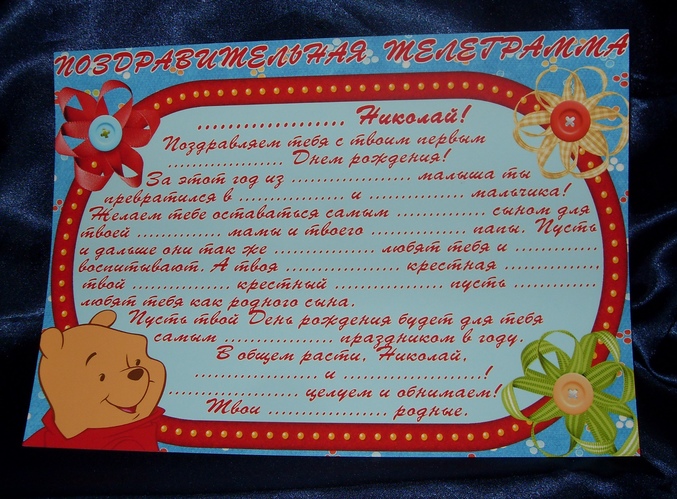 ПОЗДРАВИТЕЛЬНАЯ ТЕЛЕГРАММА
.................. Николай!
Поздравляем тебя с твоим первым
................. Днем рождения!
За этот год из .................. малыша ты
превратился в ................ и ................ мальчика!
Желаем тебе оставаться самым ............. сыном для
твоей ............. мамы и твоего ............ папы. Пусть
и дальше они так же ............... любят тебя и .............
воспитывают. А твоя ................. крестная ..............
твой ............... крестный .............. пусть .............
любят тебя как родного сына.
Пусть твой День рождения будет для тебя
самым ................. праздником в году.
В общем расти, Николай,
.................. и ......................!
.................... целуем и обнимаем!
Твои .................. родные.